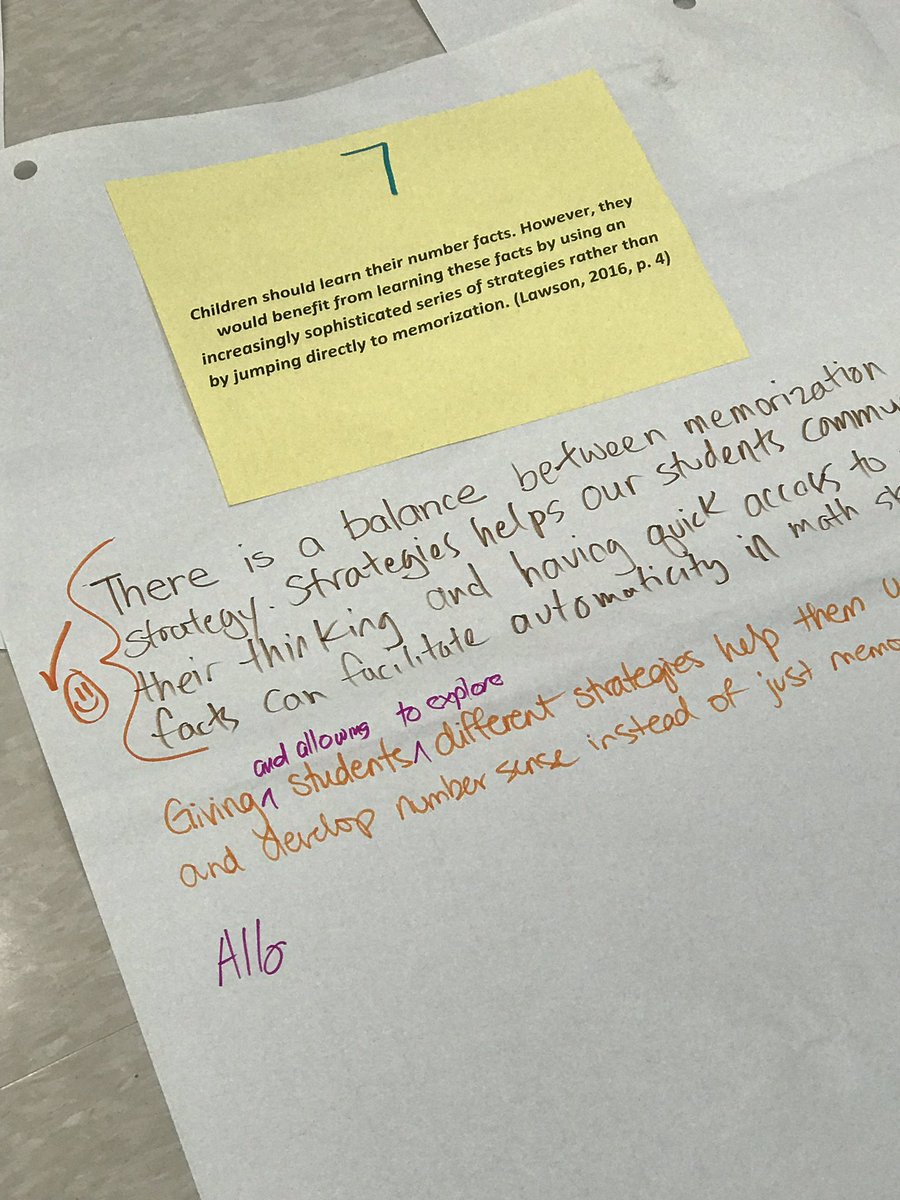 7
Children should learn their number facts. However, they
would benefit from learning these facts by using an
increasingly sophisticated series of strategies rather than
by jumping directly to memorization. (Lawson, 2016, p. 4)
There is a balance between memorization
strategy. Strategies helps our students commu
their thinking and having quick access to
facts can facilitate automaticity in math sk
and allowing to explore
Giving students different strategies help them u
and develop number sense instead of just memo
Allo